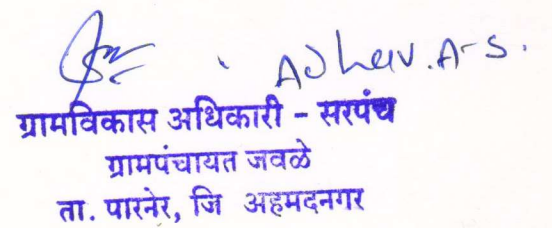 Adhav.A-S.
ग्रामविकास अधिकारी - सरपंच
ग्रामपंचायत जवळे
ता. पारनेर, जि अहमदनगर